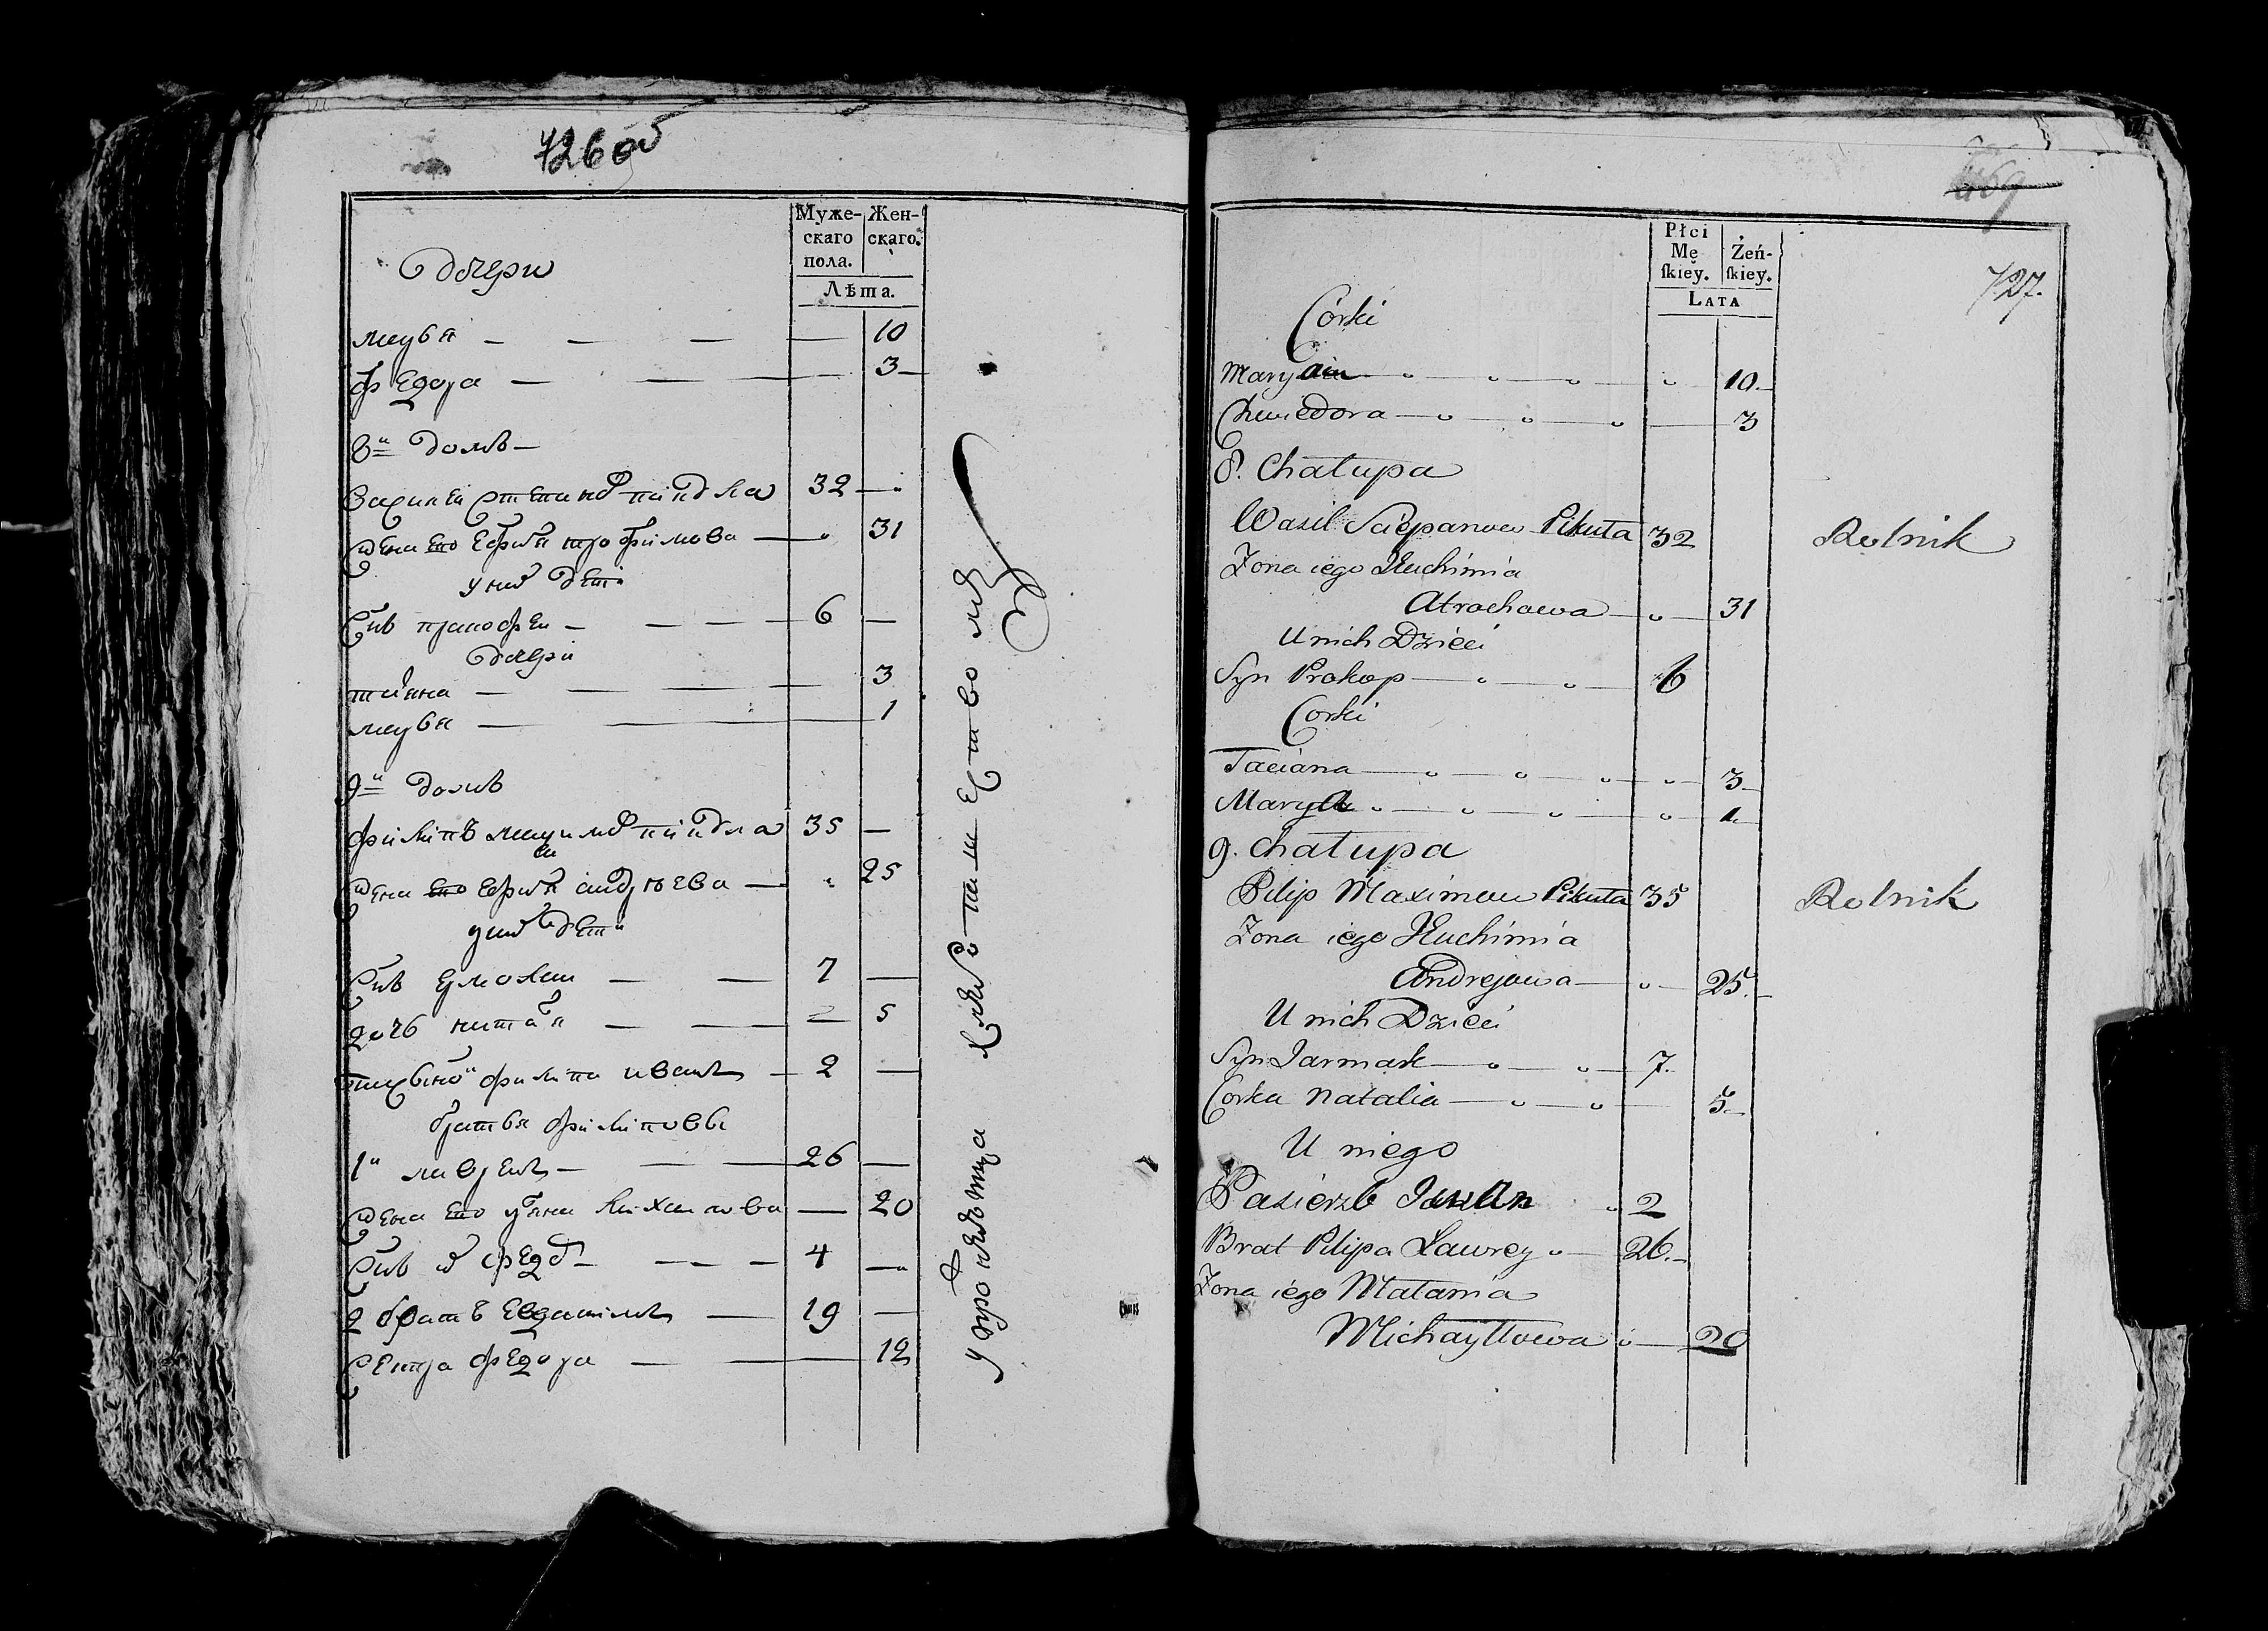 726об
Муже-
скаго
пола.
Жен-
скаго.
Лѣта.
дочери
марья — — — — 10
федора — — — 3
8й домъ
василей степановъ пикула 32
жена его ефимья трофимова — 31
у них дети
Сынъ прокофеи — — — 6
дочери
татьяна — — — 3
марья — — 1
9й домъ
филипъ максимовъ пикула 35 —
жена его ефимья андреева — 25
у них дети
Сынъ ермолай — — 7 —
дочь наталья — — 5
филипа иванъ — 2 —
братья филиповы
1й лаврен — — 26 —
жена его михайлова — 20
Сынъ федор — — 4 —
2 братъ — 19 —
сестра федора — — 12
упражняютца хлебопашеством
Płci
Mę
ſkiey.
Żeń-
ſkiey.
LATA
727.
Córki
Marya 10
Chwiedora 3
8. Chałupa
Wasil Sciepanow Pikuła 32 Rolnik
Żona iego Jeuchimia
Atrochowa 31
U nich Dzieci
Syn Prokop 6
Corki
Taciana 3
Marya 1
9. Chałupa
Pilip Maximow Pikuła 35 Rolnik
Żona iego Jeuchimia
Andrejowa 25
U nich Dzieci
Syn Jarmak 7
Corka Natalia 5
U niego
Pasierzb Iwan 2
Brat Pilipa Ławrey 26
Żona iego Matania
Michayłłowa 20